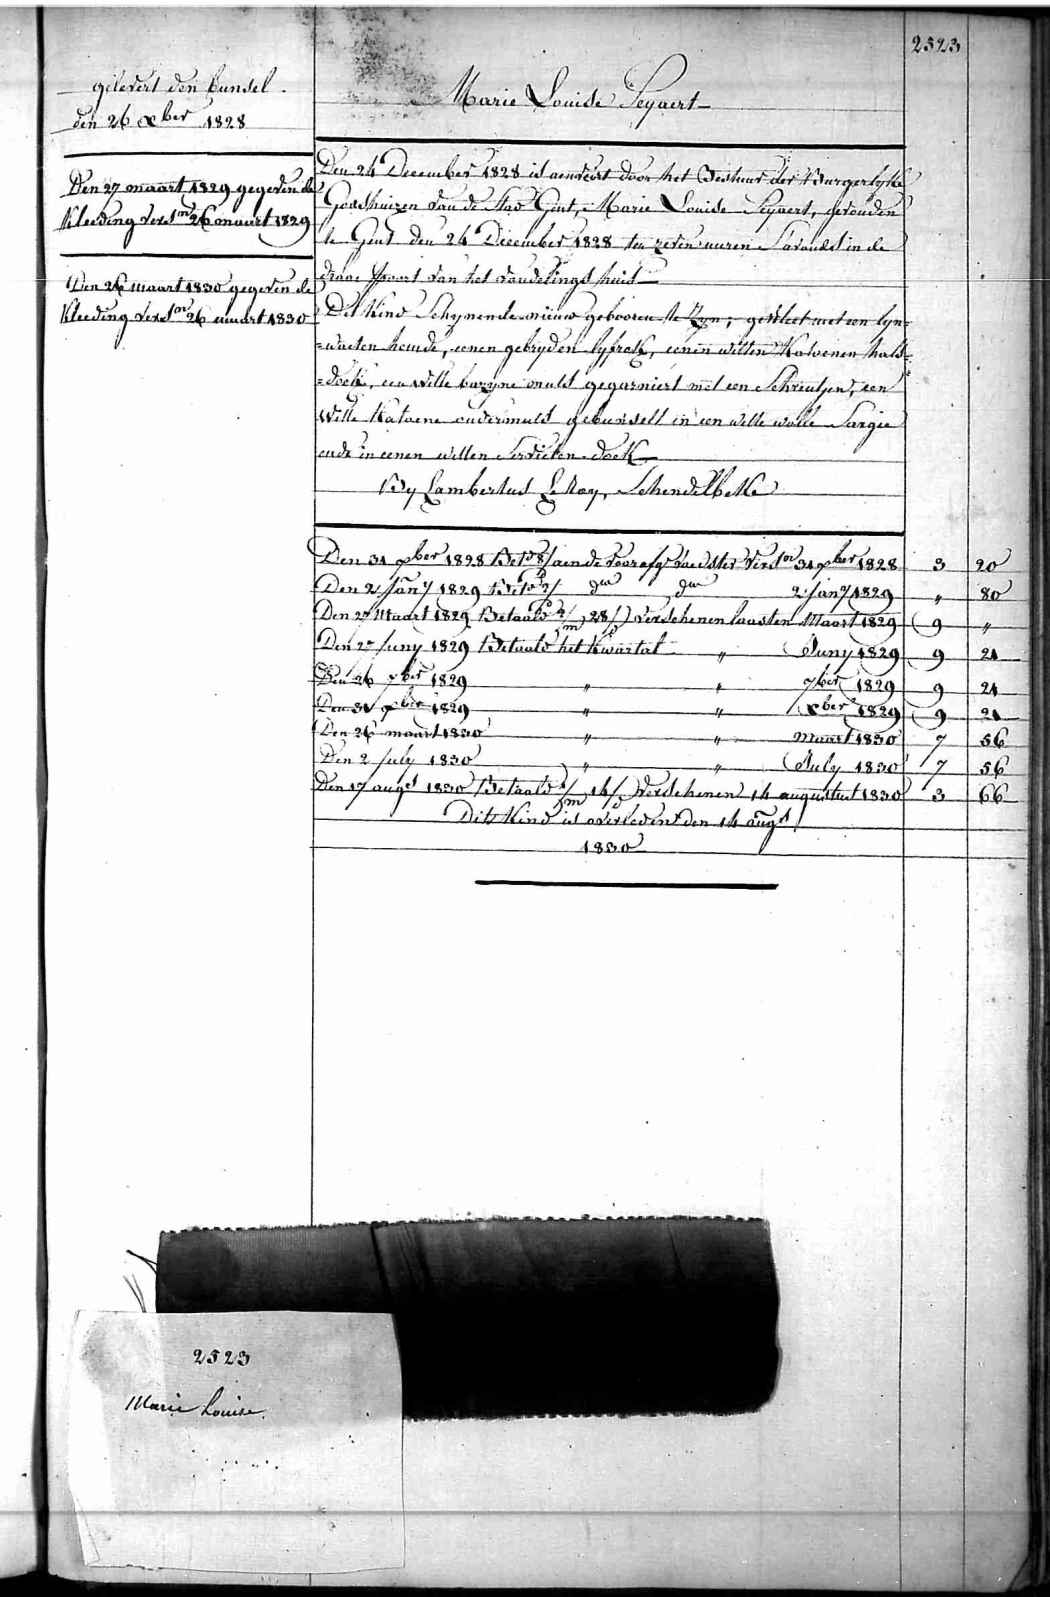 2523
gelevert den bunsel.
den 26 xber 1828
Den 27 maart 1829 gegeven de
Kleeding versn 26 maart 1829
Den 26 maart 1830 gegeven de
Kleeding versn 26 maart 1830
Marie Louise Seyaert
Den 24 December 1828 is aenveirt door het Bestuur der Burgerlyke
Godshuizen van de Stad Gent, Marie Louise Seyaert, gevonden
te Gent den 24 December 1828 ten zeven uuren S'avonds in de
draae Poort van het vondelings huis
Dit Kind Schynende nieuw gebooren te Zyn; gekleet met een lyn=
=waeten hemde, eenen gebryden lyfrok, eenen witten Katoenen hals=
=doek, een witte bazyne muts gegarniert met een Schreutjen, een
witte Katoene ondermuts gebunselt in een witte wolle Sargie
ende in eenen witten Servieten doek
By Lambertus LeRoy, Schendelbeke
Den 31 xber 1828 Bets 8/ aen de voorafge voedster versn 31 xber 1828 3 20
Den 2 Jany 1829 Bets 2/ do do 2 Jany 1829 " 80
Den 2 Maart 1829 Betaald 2/m 28/d verschenen laasten Maart 1829 9 "
Den 2 Juny 1829 Betaald het Kwartal " Juny 1829 9 21
Den 26 7ber 1829 " " 7ber 1829 9 21
Den 31 xber 1829 " " xber 1829 9 21
Den 26 maart 1830 " " Maart 1830 7 56
Den 2 July 1830 " " July 1830 7 56
Den 17 augt 1830 Betaald 1/m 14/d verschenen 14 augustus 1830 3 66
Dits Kind is overleden den 14 augt
1830
2523
Marie Louise.